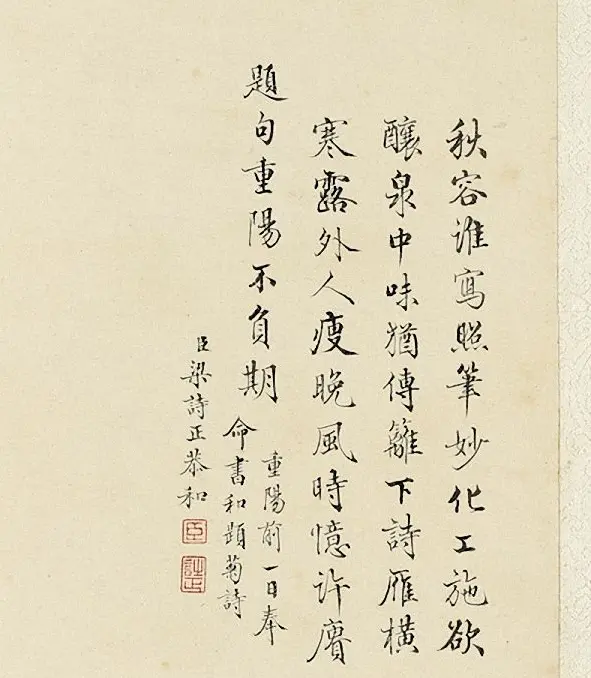 秋容誰寫照筆妙化工施欲
釀泉中味猶傳籬下詩雁橫
寒露外人瘦晚風時憶許賡
題句重陽不負期
重陽前一日奉
命書和題菊詩
臣梁詩正恭和
臣
詩正